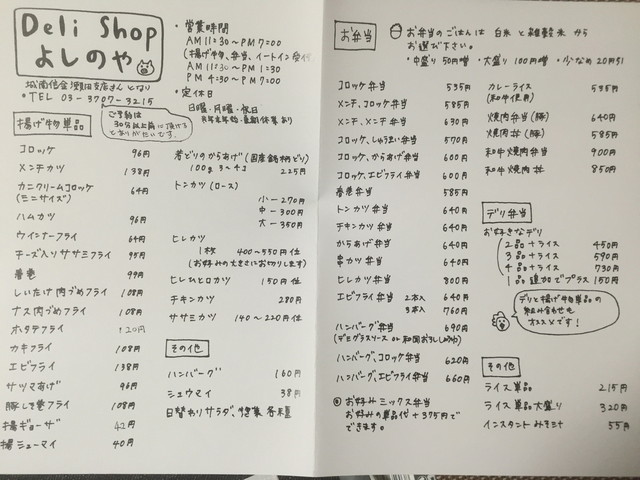 Deli Shop
よしのや
城南信金瀬田支店さん となり
・TEL 03-3707-3215
・営業時間
AM 11:30～PM 7:00
(揚げ物、弁当、イートイン受付
AM 11:30～PM 1:30
PM 4:30～PM 7:00
・定休日
日曜・月曜・祝日
ご予約は
30分以上前に頂けると
ありがたいです。
揚げ物単品
コロッケ 96円
メンチカツ 138円
カニクリームコロッケ 64円
(ミニサイズ)
ハムカツ 96円
ウインナーフライ 64円
チーズ入りササミフライ 95円
春巻 99円
しいたけ肉づめフライ 108円
ナス肉づめフライ 108円
ホタテフライ 120円
カキフライ 108円
エビフライ 138円
サツマあげ 96円
豚しそ巻フライ 108円
揚ギョーザ 42円
揚シューマイ 40円
若どりのからあげ (国産銘柄どり)
100g 3～4ヶ 225円
トンカツ (ロース)
小 ー 270円
中 ー 300円
大 ー 350円
ヒレカツ
1枚 400～550円位
(お好みの大きさにお切りします)
ヒレひとロカツ 150円位
チキンカツ 280円
ササミカツ 140～220円位
その他
ハンバーグ 160円
シュウマイ 38円
日替わりサラダ、惣菜 各種
お弁当
お弁当のごはんは 白米 と 雑穀米 から
お選び下さい。
・中盛り 50円増 ・大盛り 100円増 ・少なめ 20円引
コロッケ弁当 535円
メンチ、コロッケ弁当 585円
メンチ、メンチ弁当 630円
コロッケ、しゅうまい弁当 570円
コロッケ、からあげ弁当 600円
コロッケ、エビフライ弁当 600円
春巻弁当 585円
トンカツ弁当 640円
チキンカツ弁当 640円
からあげ弁当 640円
串カツ弁当 640円
ヒレカツ弁当 800円
エビフライ弁当 2本入 640円
3本入 760円
ハンバーグ弁当 690円
(デミグラスソース or 和風おろししょうゆ)
ハンバーグ、コロッケ弁当 620円
ハンバーグ、エビフライ弁当 660円
◎ お好みミックス弁当
お好みの単品代 + 375円で
できます。
カレーライス 585円
(和牛使用)
焼肉弁当 (豚) 640円
焼肉丼 (豚) 585円
和牛焼肉弁当 900円
和牛焼肉丼 850円
デリ弁当
お好きなデリ
2品+ライス 450円
3品+ライス 590円
4品+ライス 730円
1品追加でプラス 150円
デリと揚げ物単品の
組み合わせも
オススメです!
その他
ライス単品 215円
ライス単品大盛り 320円
インスタントみそ汁 55円